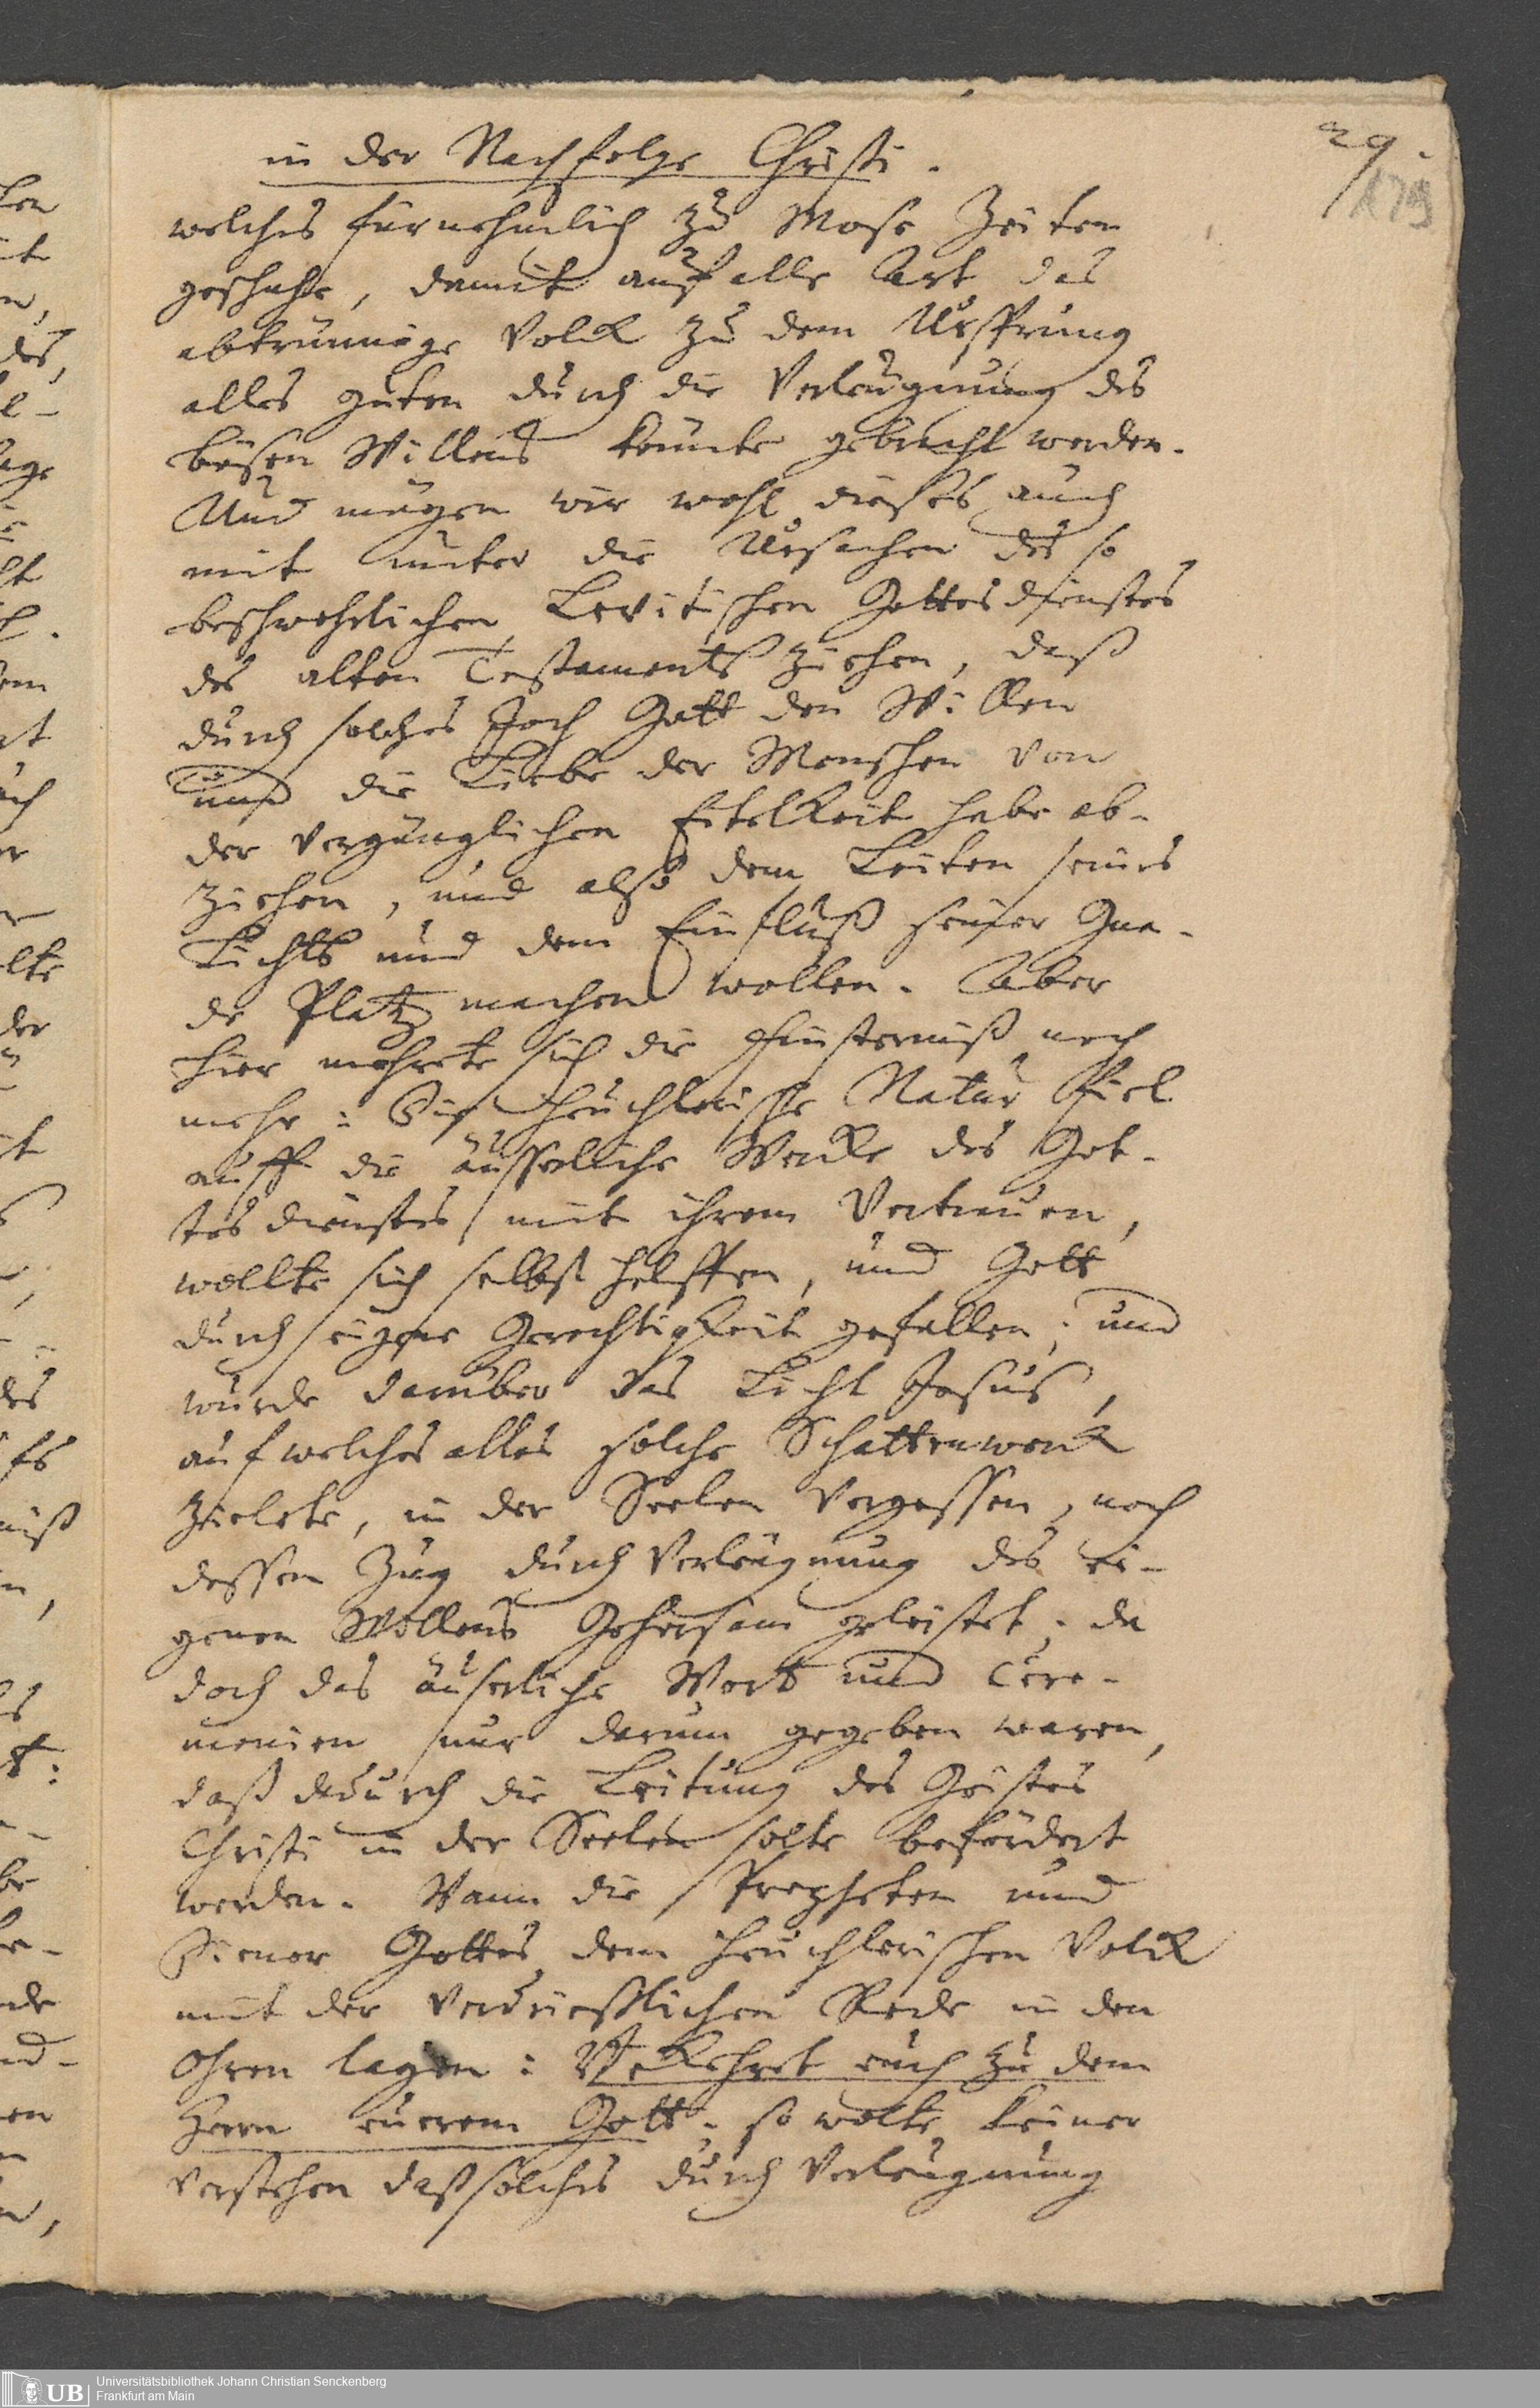 29.
179
in der Nachfolge Christi.
welches fürnehmlich zu Mose Zeiten
geschahe, damit auf alle Art das
abtrünnige Volck zu dem Ursprung
alles guten durch die Verleugnung des
bösen Willens könnte gebracht werden.
Und mögen wir wohl dieses auch
mit unter die Ursachen des so
beschwehrlichen Levitischen Gottesdienstes
des alten Testaments ziehen, daß
durch solches Joch Gott den Willen
und die Liebe der Menschen von
der vergänglichen Eitelkeit habe ab-
ziehen, und also dem Leiten seines
Lichts und dem Einfluß seiner Gna-
de Platz machen wollen. Aber
hier mehrete sich die Finsterniß noch
mehr: Die heuchlerische Natur fiel
auff die äusserliche Wercke des Got-
tesdienstes mit ihrem Vertrauen,
wollte sich selbst helffen, und Gott
durch eigene Gerechtigkeit gefallen; und
wurde darüber das Licht Jesus,
auf welches alles solche Schattenwerck
zielete, in der Seelen vergessen, noch
dessen Zug durch Verleugnung des ei-
genen Wollens Gehorsam geleistet; da
doch das äuserliche Wort und Cere-
monien nur darum gegeben waren,
daß dadurch die Leitung des Geistes
Christi in der Seelen solte befördert
werden. Wann die Propheten und
Diener Gottes dem heuchlerischen Volck
mit der verdrießlichen Rede in den
Ohren lagen: Bekehret euch zu dem
Herrn eurem Gott; so wolte keiner
verstehen daß solches durch Verleugnung
UB
Universitätsbibliothek Johann Christian Senckenberg
Frankfurt am Main